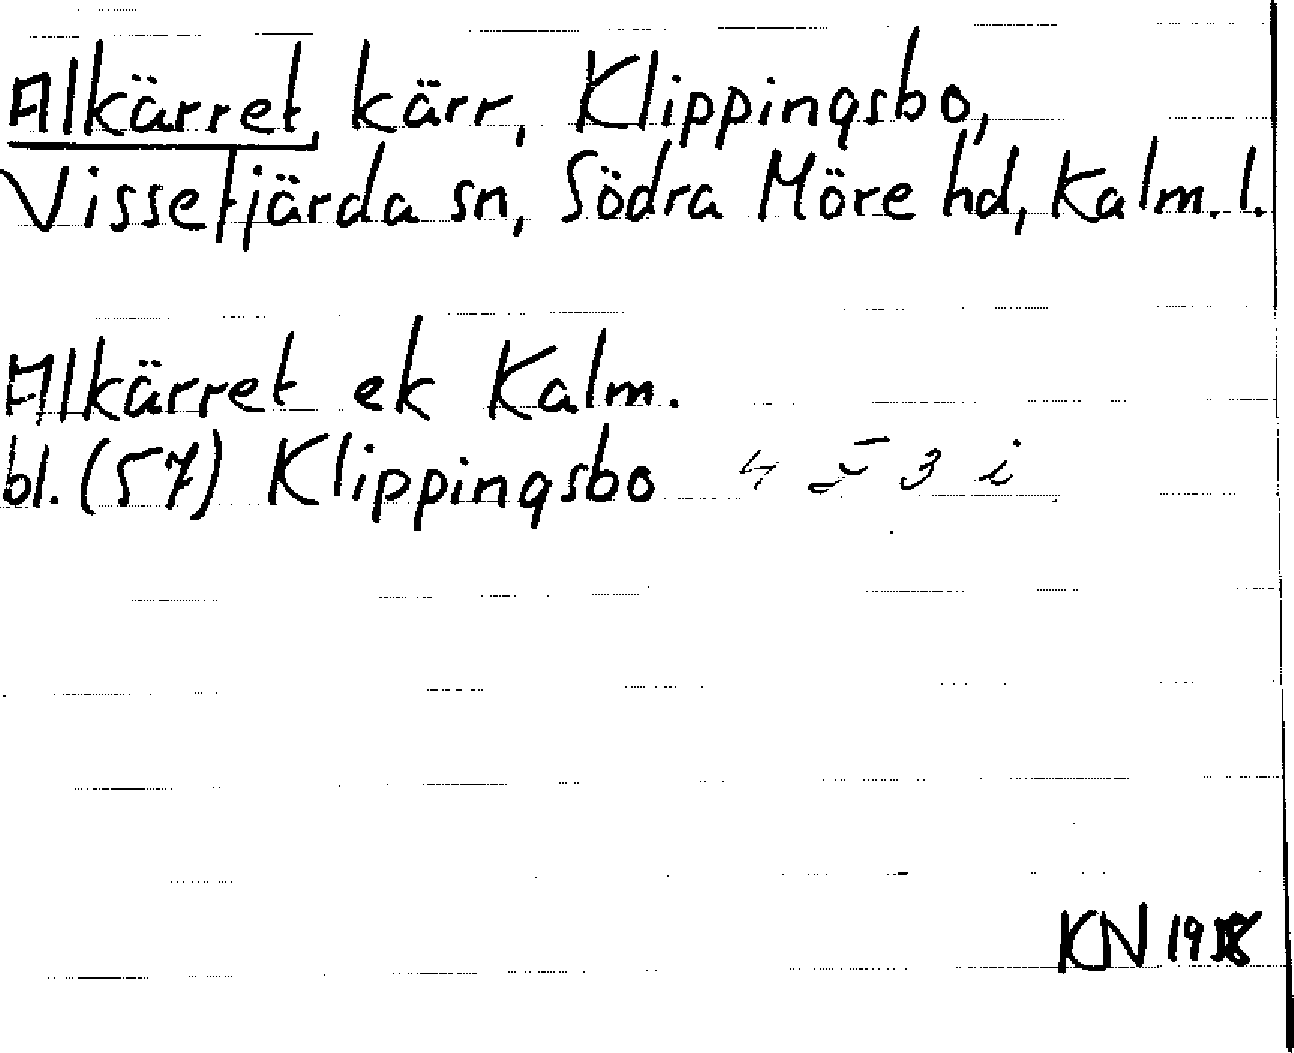 Alkärret, kärr, Klippingsbo,
Vissefjärda sn, Södra Möre hd, Kalm. l.
Alkärret ek Kalm.
bl. (57) Klippingsbo 4 F 3 i
KN